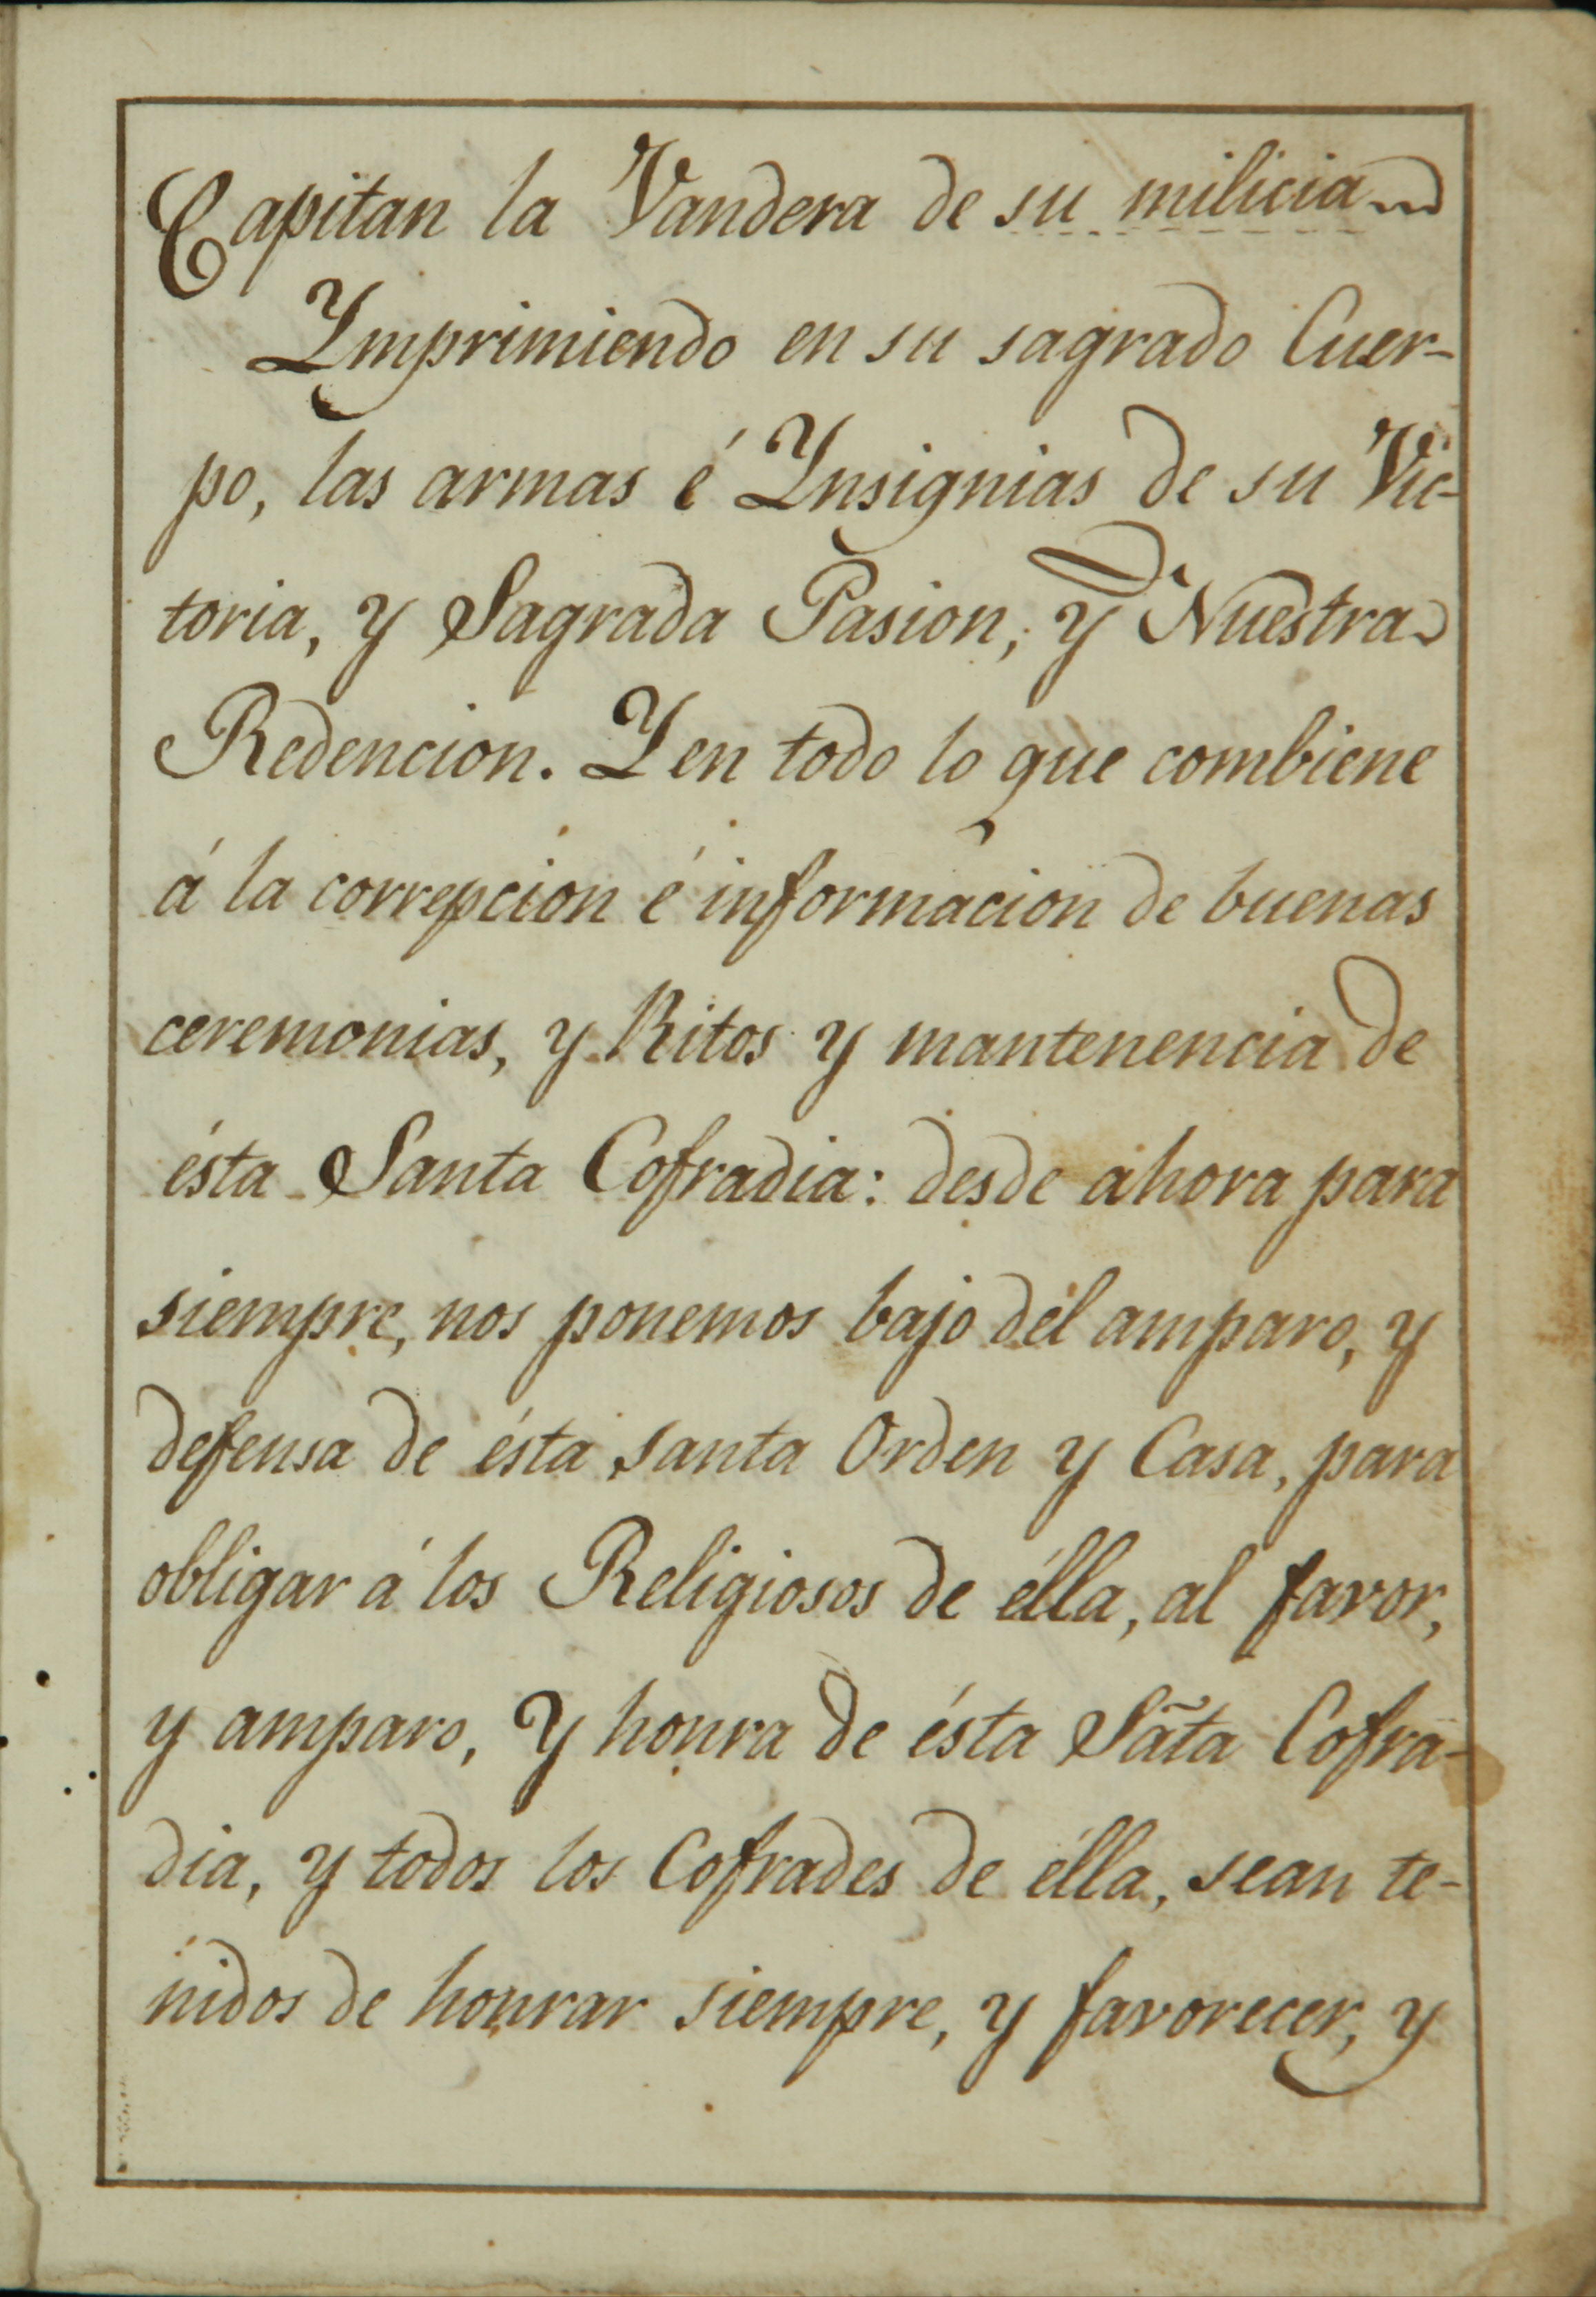 Capitan la Vandera de su milicia
Ymprimiendo en su sagrado Cuer-
po, las armas é Ynsignias de su Vic-
toria, y Sagrada Pasion, y Nuestra
Redencion. Y en todo lo que combiene
á la correpcion é informacion de buenas
ceremonias, y Ritos y mantenencia de
ésta Santa Cofradia: desde ahora para
siempre, nos ponemos bajo del amparo, y
defensa de ésta santa Orden y Casa, para
obligar á los Religiosos de élla, al favor,
y amparo, y honra de ésta Sãta Cofra-
dia, y todos los Cofrades de élla, sean te-
nidos de honrar siempre, y favorecer, y